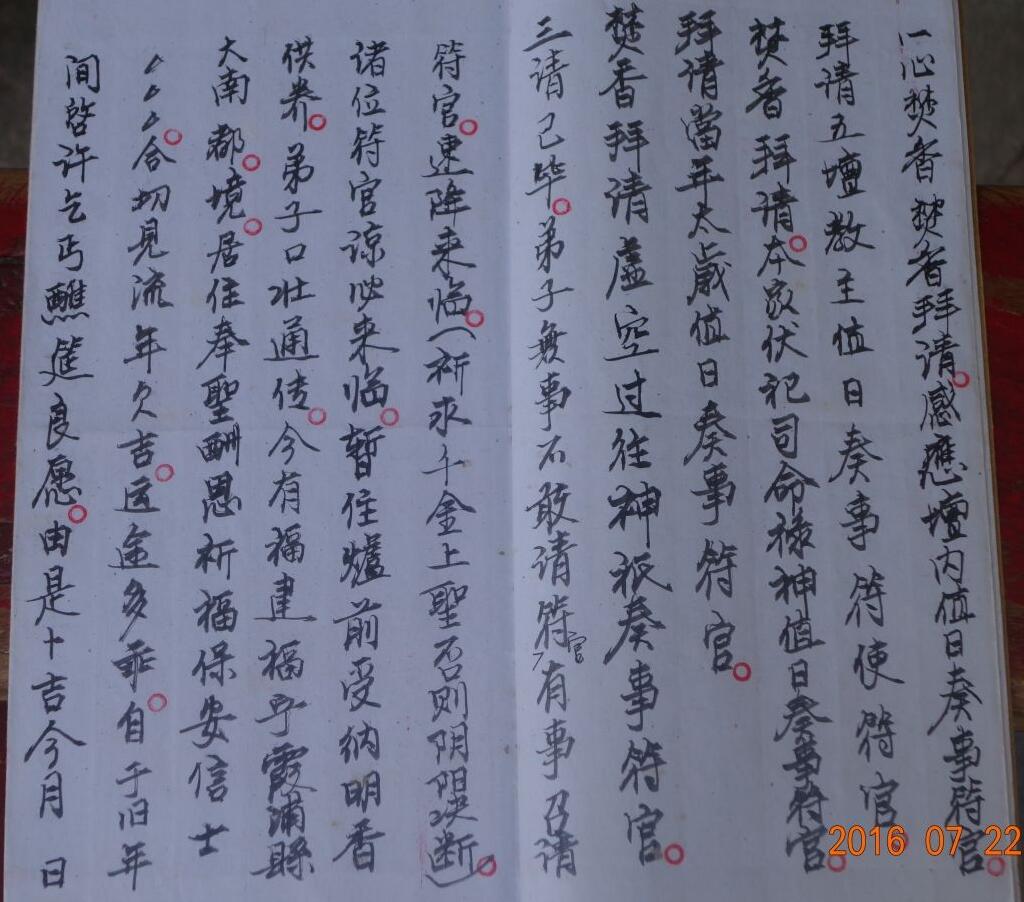 一心焚香焚香拜请感應壇内值日奏事符官
拜请五壇教主值日奏事符使符官
焚香拜请本家伏祀司命禄神值日奏事符官
拜请當年太歲值日奏事符官
焚香拜请虚空过往神祇奏事符官
三请已毕弟子無事不敢请符官有事召请
符官速降来临(祈求千金上聖否则阴阳决断)
诸位符官谅必来临暂住爐前受纳明香
供养弟子口壮通传今有福建福宁霞浦縣
大南都境居住奉聖酬恩祈福保安信士
合切見流年欠吉运途多乖自于旧年
间啓许乞丐醮筵良愿由是卜吉今月 日
2016 07 22